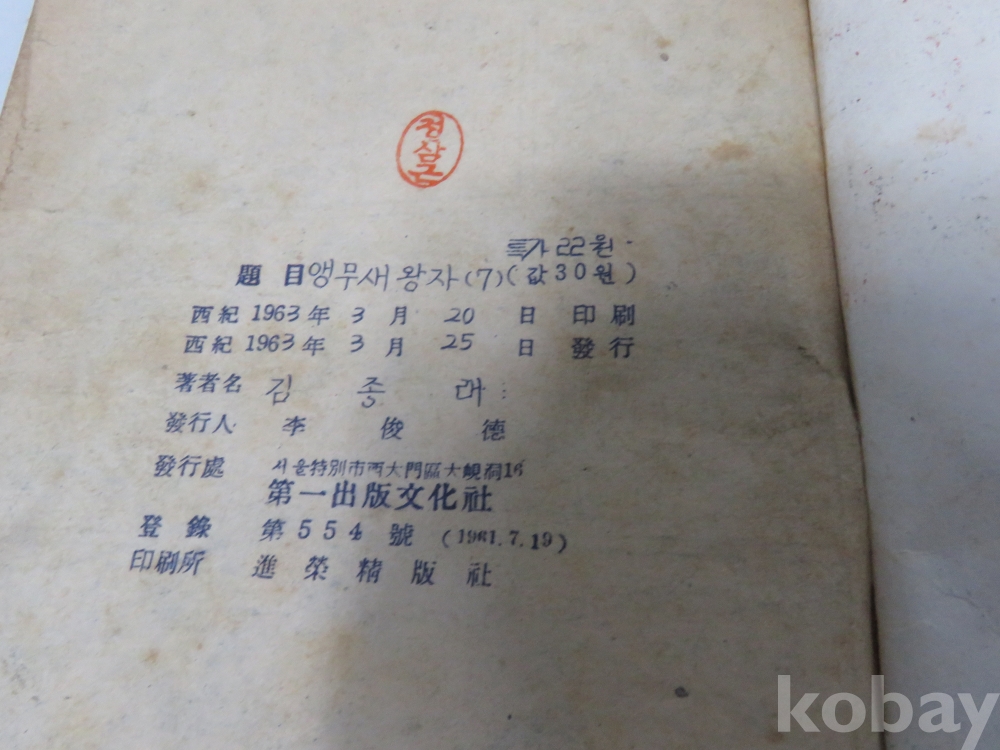 정삼근
특가 22원
題 目 앵무새 왕자 (7) (값 30원)
西紀 1963年 3 月 20 日 印刷
西紀 1963年 3 月 25 日 發行
著者名 김 종 래
發行人 李 俊 德
發行處 서울特別市西大門區大峴洞16
第一出版文化社
登 錄 第 554 號 (1961.7.19)
印刷所 進 榮 精 版 社
kobay